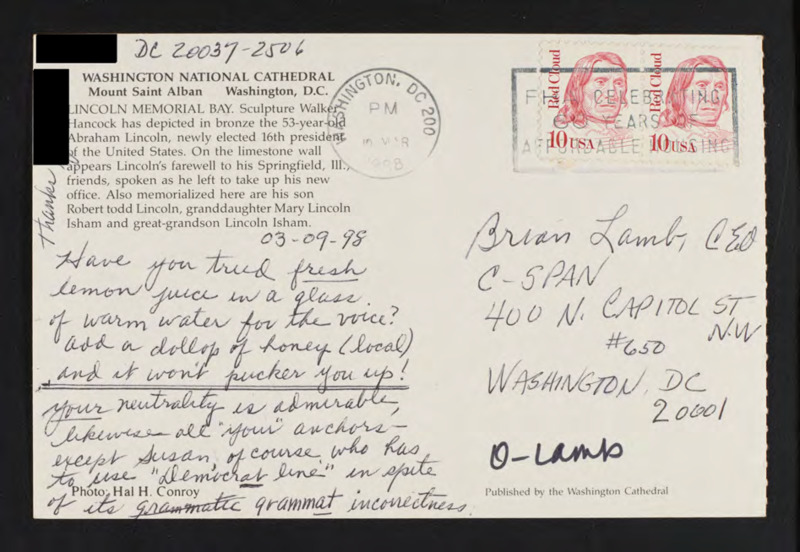 DC 20037-2506
WASHINGTON NATIONAL CATHEDRAL
Mount Saint Alban Washington, D.C.
LINCOLN MEMORIAL BAY. Sculpture Walker
Hancock has depicted in bronze the 53-year-old
Abraham Lincoln, newly elected 16th president
of the United States. On the limestone wall
appears Lincoln's farewell to his Springfield, Ill.,
friends, spoken as he left to take up his new
office. Also memorialized here are his son
Robert todd Lincoln, granddaughter Mary Lincoln
Isham and great-grandson Lincoln Isham.
Thanks
03-09-98
Have you tried fresh
lemon juice in a glass
of warm water for the voice?
add a dollop of honey (local)
and it won't pucker you up!
Your neutrality is admirable,
likewise all "your" anchors–
except Susan, of course, who has
to use "Democrat line" in spite
of its grammatic grammat incorrectness.
Photo: Hal H. Conroy
WASHINGTON, DC 200
PM
MAR
1998
Red Cloud
10 USA
Red Cloud
10 USA
CELEBRATING
YEARS OF
AFFORDABLE HOUSING
Brian Lamb, CEO
C-SPAN
400 N. CAPITOL ST
N.W
#650
WASHINGTON, DC
20001
O-Lamb
Published by the Washington Cathedral